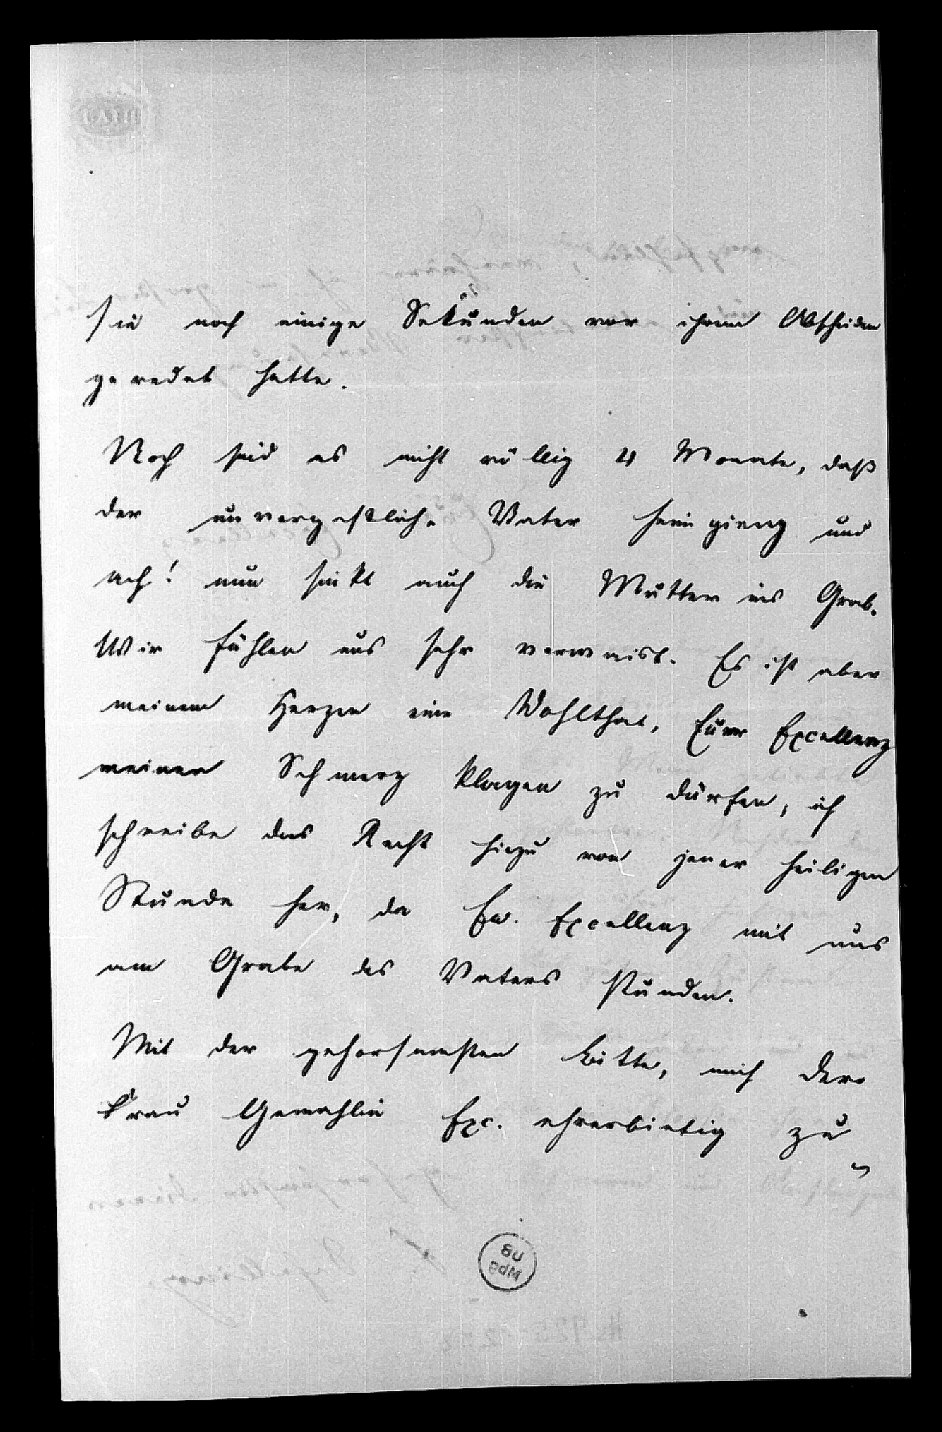 sie noch einige Sekunden vor ihrem Abscheiden
geredet hatte.
Noch sind es nicht völlig 4 Monate, daß
der unvergeßliche Vater heimgieng und
ach! nun sinkt auch die Mutter ins Grab.
Wir fühlen uns sehr verwaist. Es ist aber
meinem Herzen eine Wohlthat, Euer Excellenz
meinen Schmerz klagen zu dürfen, ich
schreibe das Recht hiezu von jener heiligen
Stunde her, da Ew. Excellenz mit uns
am Grabe des Vaters stunden.
Mit der gehorsamsten Bitte, mich Dero
Frau Gemahlin Exc. ehrerbietig zu